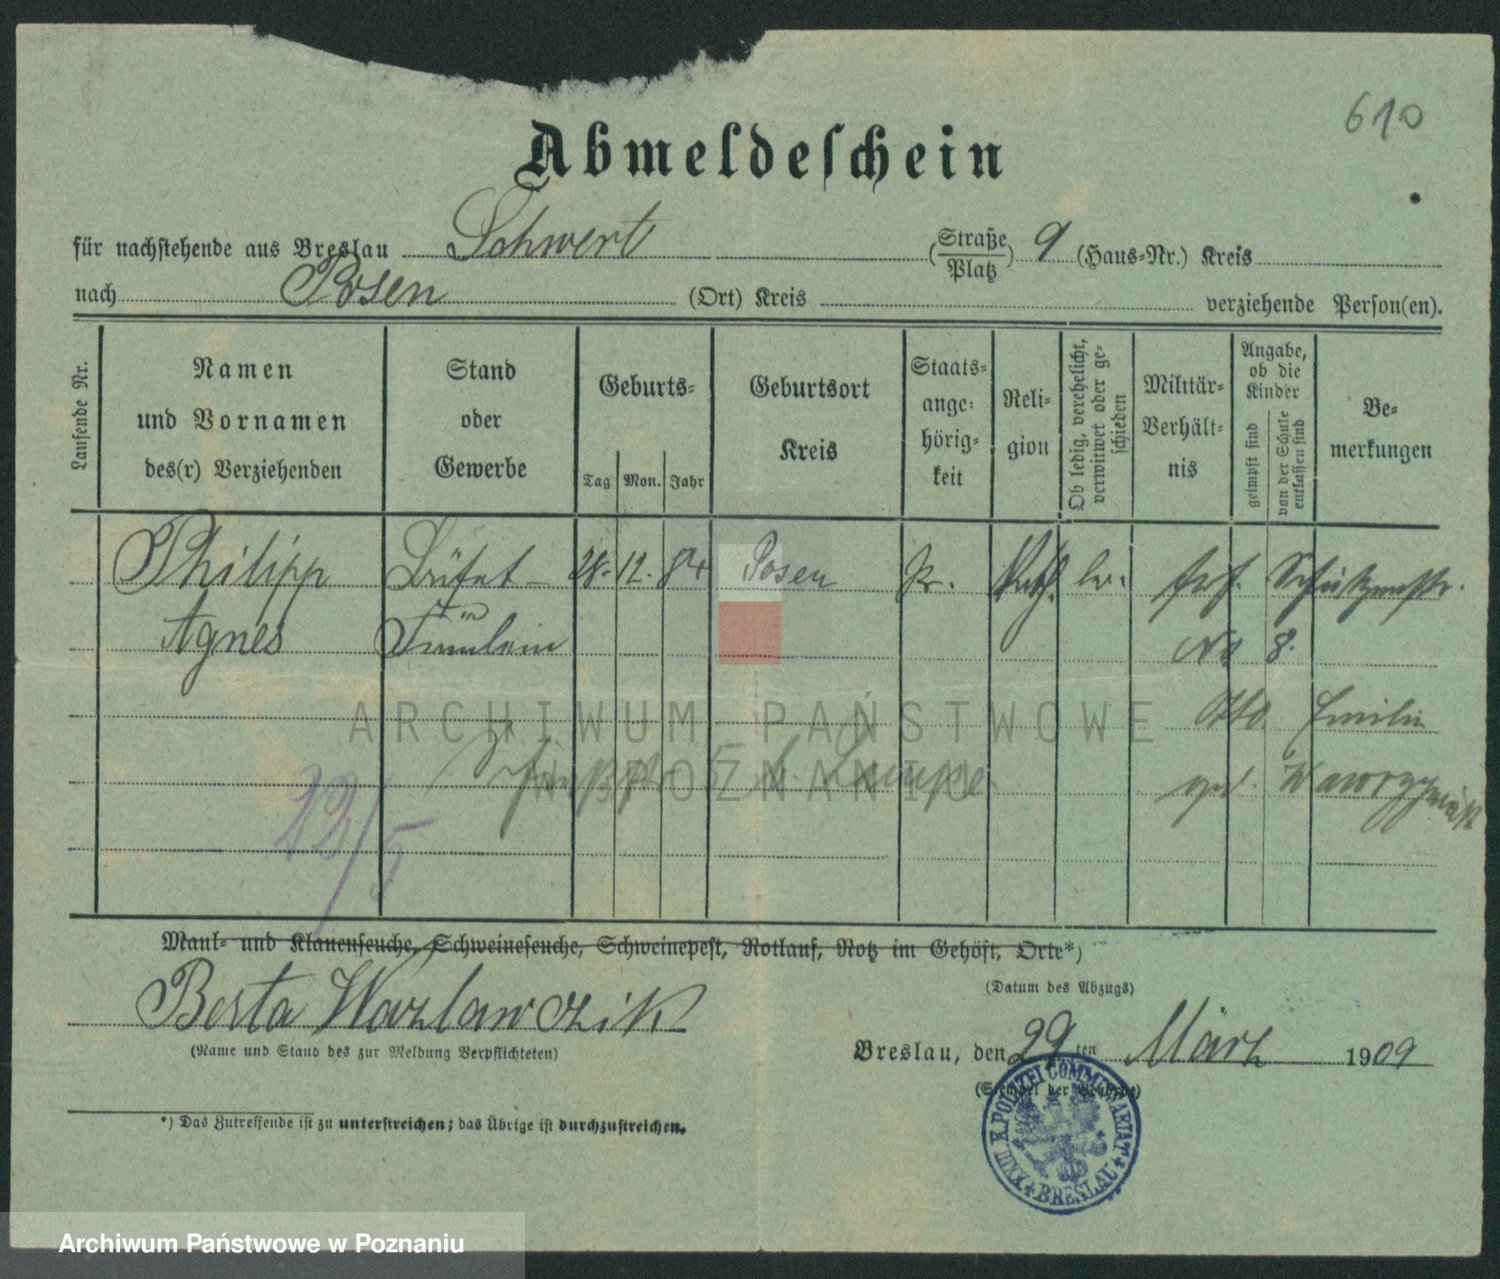 610
Abmeldeschein
für nachstehende aus Breslau Schwert (Straße/Platz) 9 (Haus-Nr.) Kreis
nach Posen (Ort) Kreis verziehende Person(en).
Laufende Nr.
Namen und Vornamen des(r) Verziehenden
Stand oder Gewerbe
Geburts-
Tag Mon. Jahr
Geburtsort Kreis
Staats-
ange-
hörig-
keit
Reli-
gion
Ob ledig, verehelicht,
verwitwet oder ge-
schieden
Militär-
Verhält-
nis
Angabe,
ob die
Kinder
geimpft sind
von der Schule
entlassen sind
Be-
merkungen
Philipp Büfet- 28. 12. 84 Posen Pr. Kath. le. Schützenstr.
Agnes Fräulein No 8.
Otto Emilie
12/5
ARCHIWUM PAŃSTWOWE
W POZNANIU
Maul- und Klauenseuche, Schweineseuche, Schweinepest, Rotlauf, Rotz im Gehöft, Orte*)
Berta Wazlawczik
(Name und Stand des zur Meldung Verpflichteten)
(Datum des Abzugs)
Breslau, den 29ten März 1909
(Stempel der Behörde)
K. POLIZEI COMMISSARIAT BRESLAU
*) Das Zutreffende ist zu unterstreichen; das Übrige ist durchzustreichen.
Archiwum Państwowe w Poznaniu